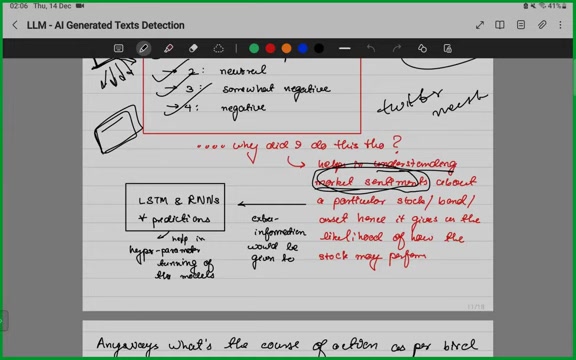 02:06 Thu, 14 Dec
41%
LLM - AI Generated Texts Detection
2: neutral
3: somewhat negative
4: negative
twitter
.... why did I do this tho?
helps in understanding
market sentiments about
a particular stock/bond/
asset hence it gives us the
likelihood of how the
stock may perform
LSTM & RNNs
* predictions
extra-
information
would be
given to
help in
hyper-parameter
tunning of
the models
11/19
Anyways what's the course of action as per bird